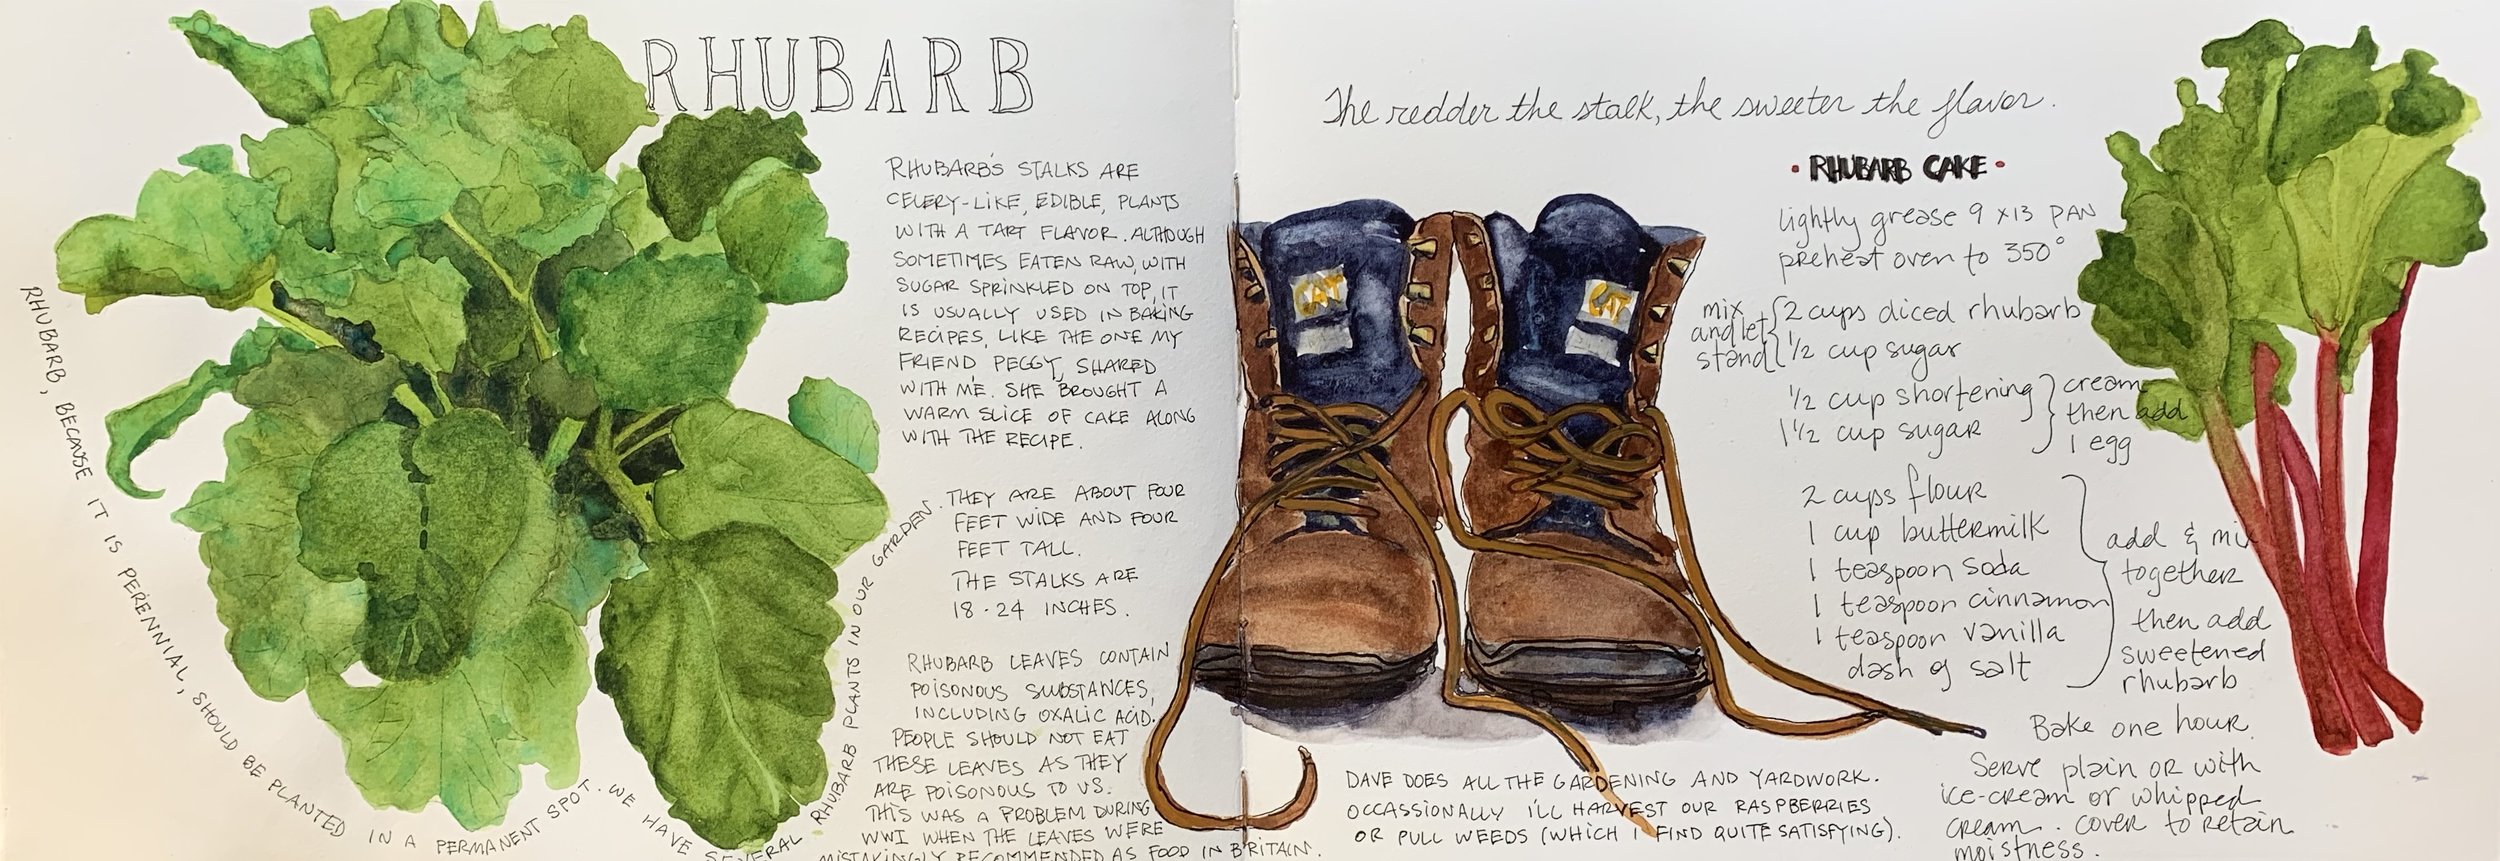 RHUBARB
RHUBARB'S STALKS ARE
CELERY-LIKE, EDIBLE, PLANTS
WITH A TART FLAVOR. ALTHOUGH
SOMETIMES EATEN RAW, WITH
SUGAR SPRINKLED ON TOP, IT
IS USUALLY USED IN BAKING
RECIPES, LIKE THE ONE MY
FRIEND PEGGY, SHARED
WITH ME. SHE BROUGHT A
WARM SLICE OF CAKE ALONG
WITH THE RECIPE.
RHUBARB, BECAUSE IT IS PERENNIAL, SHOULD BE PLANTED IN A PERMANENT SPOT. WE HAVE SEVERAL RHUBARB PLANTS IN OUR GARDEN.
THEY ARE ABOUT FOUR
FEET WIDE AND FOUR
FEET TALL.
THE STALKS ARE
18-24 INCHES.
RHUBARB LEAVES CONTAIN
POISONOUS SUBSTANCES,
INCLUDING OXALIC ACID.
PEOPLE SHOULD NOT EAT
THESE LEAVES AS THEY
ARE POISONOUS TO US.
THIS WAS A PROBLEM DURING
WWI WHEN THE LEAVES WERE
MISTAKINGLY RECOMMENDED AS FOOD IN BRITAIN.
CAT
CAT
The redder the stalk, the sweeter the flavor.
• RHUBARB CAKE •
lightly grease 9 x13 PAN
preheat oven to 350°
mix
and let
stand
2 cups diced rhubarb
1/2 cup sugar
1/2 cup shortening
1 1/2 cup sugar
cream
then add
1 egg
2 cups flour
1 cup buttermilk
1 teaspoon soda
1 teaspoon cinnamon
1 teaspoon vanilla
dash of salt
add & mix
together
then add
sweetened
rhubarb
Bake one hour.
Serve plain or with
ice-cream or whipped
cream. cover to retain
moistness.
DAVE DOES ALL THE GARDENING AND YARDWORK.
OCCASSIONALLY I'LL HARVEST OUR RASPBERRIES
OR PULL WEEDS (WHICH I FIND QUITE SATISFYING).